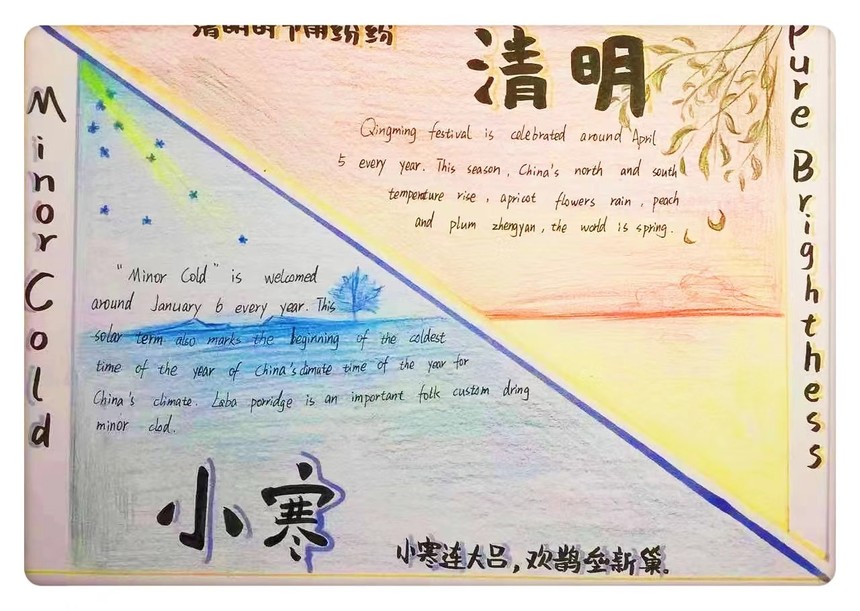 清明时节雨纷纷
清明
Pure Brighthess
Qingming festival is celebrated around April
5 every year. This season, China's north and south
temperture rise, apricot flowers rain, peach
and plum zhengyan, the world is spring.
Minor Cold
"Minor Cold" is welcomed
around January 6 every year. This
solar term also marks the beginning of the coldest
time of the year of China's climate time of the year for
China's climate. Laba porridge is an important folk custom dring
minor clod.
小寒
小寒连大吕，欢鹊垒新巢。